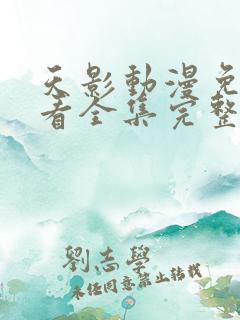 天影動漫免
看全集完整
劉志學
未經同意禁止轉載